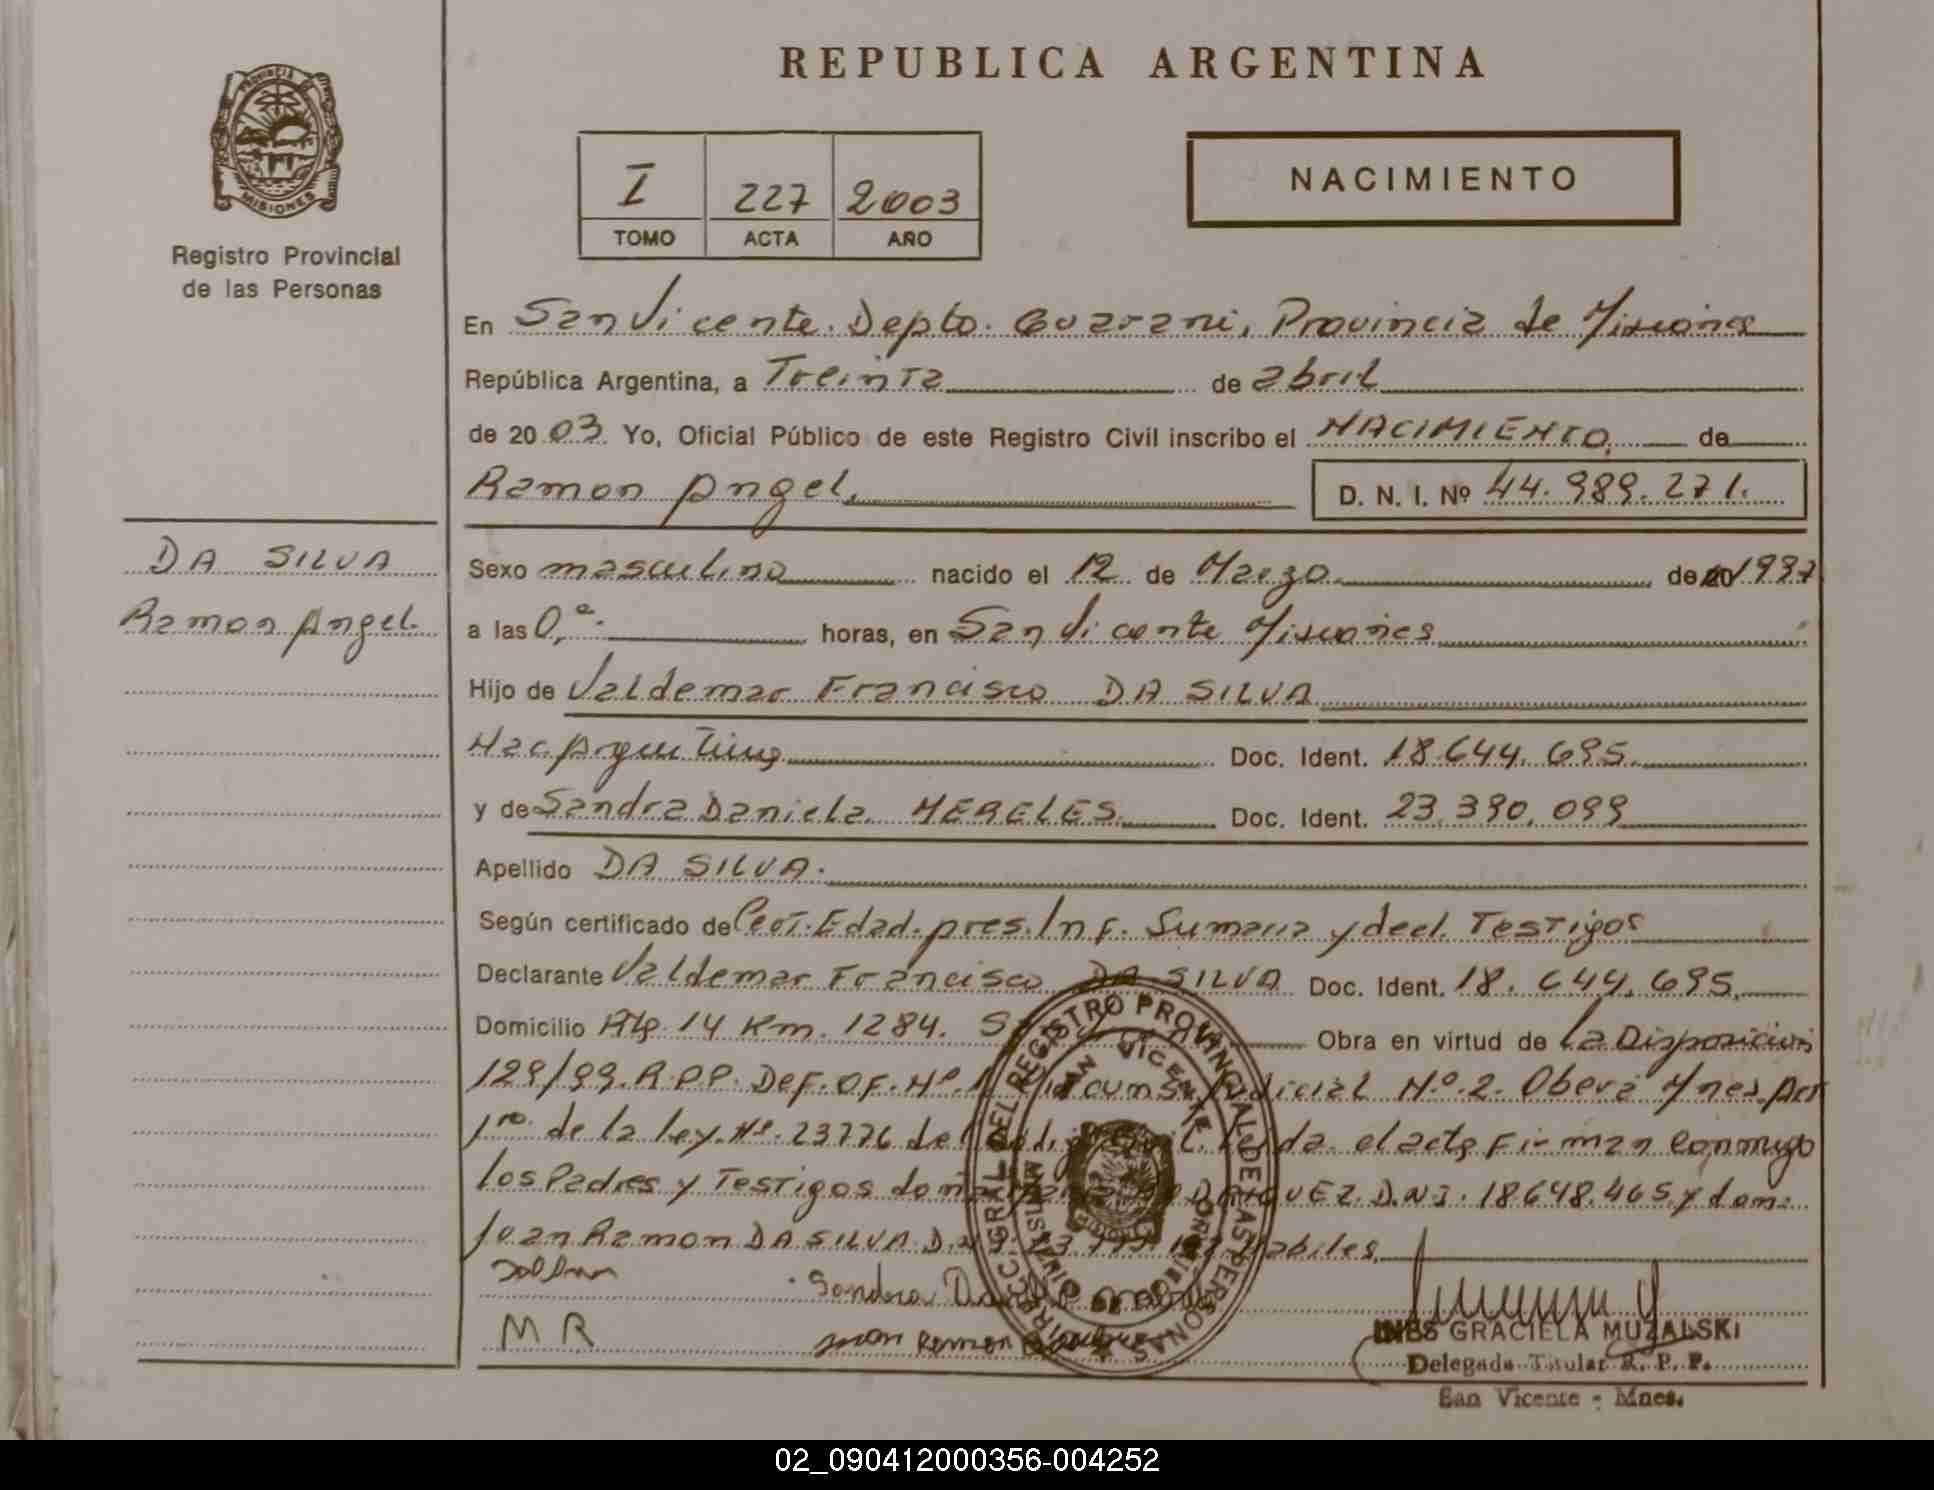 REPUBLICA ARGENTINA
PROVINCIA DE MISIONES
Registro Provincial
de las Personas
I 227 2003
TOMO ACTA AÑO
NACIMIENTO
En San Vicente. Depto. Guarani, Provincia de Misiones
República Argentina, a Treinta de abril
de 2003. Yo, Oficial Público de este Registro Civil inscribo el NACIMIENTO. de
Ramon Angel. D. N. I. Nº 44.989.271.
DA SILVA
Ramon Angel.
Sexo masculino nacido el 12 de Marzo de 20 1997
a las 0, horas, en San Vicente Misiones
Hijo de Valdemar Francisco DA SILVA
Nac. Argentino Doc. Ident. 18.644.695.
y de Sandra Daniela MERELES. Doc. Ident. 23.390.099
Apellido DA SILVA.
Según certificado de Cert. Edad. pres. Inf. Sumaria y decl. Testigos
Declarante Valdemar Francisco DA SILVA Doc. Ident. 18.644.695.
Domicilio Km. 1284. Obra en virtud de La Disposicion
129/99. R.P.P. DEF. OF. Nº Judicial Nº.2. Obera Mnes. Art
1ro. de la Ley. Nº. 23776 del el acta Firman Conmigo
los Padres y Testigos D.N.I. 18.648.465 y don:
Juan Ramon DA SILVA D.N.I. Habiles.
Sandra
M R
Juan Ramon
REGISTRO PROVINCIAL DE LAS PERSONAS
SAN VICENTE
MISIONES
INES GRACIELA MUZALSKI
Delegada Titular R. P. P.
San Vicente - Mnes.
02_090412000356-004252